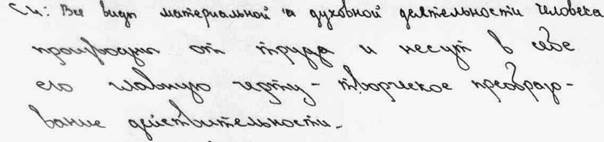 С4: Все виды материальной и духовной деятельности человека
произошли от труда и несут в себе
его главную черту - творческое преобразо-
вание действительности.